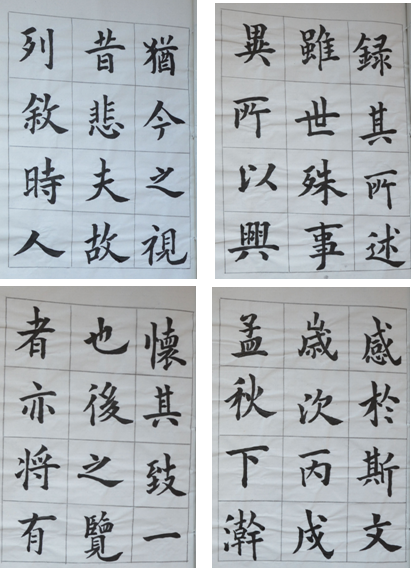 猶今之視
昔悲夫故
列敘時人
録其所述
雖世殊事
異所以興
懷其致一
也後之覽
者亦将有
感於斯文
歳次丙戌
孟秋下澣